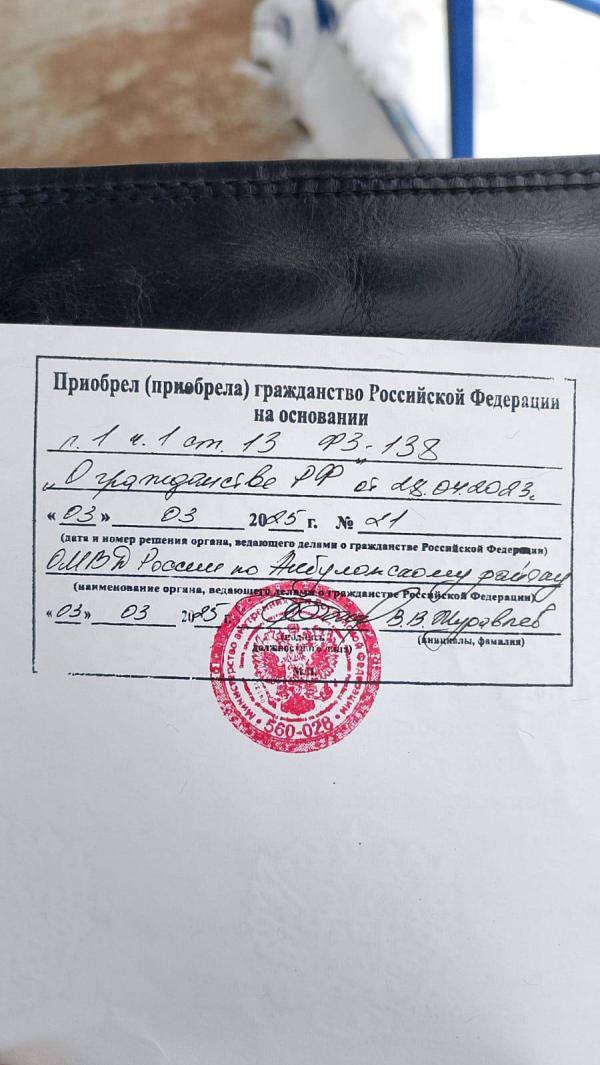 Приобрел (приобрела) гражданство Российской Федерации
на основании
п. 1 ч. 1 ст. 13 ФЗ-138
„О гражданстве РФ" от 28.04.2023г.
«03» 03 2025 г. № 21
(дата и номер решения органа, ведающего делами о гражданстве Российской Федерации)
ОМВД России по району
(наименование органа, ведающего делами о гражданстве Российской Федерации)
«03» 03 2025 г. В.В. Журавлев
(подпись должностного лица) (инициалы, фамилия)
М.П.
Министерство внутренних Российской Федерации
560-028